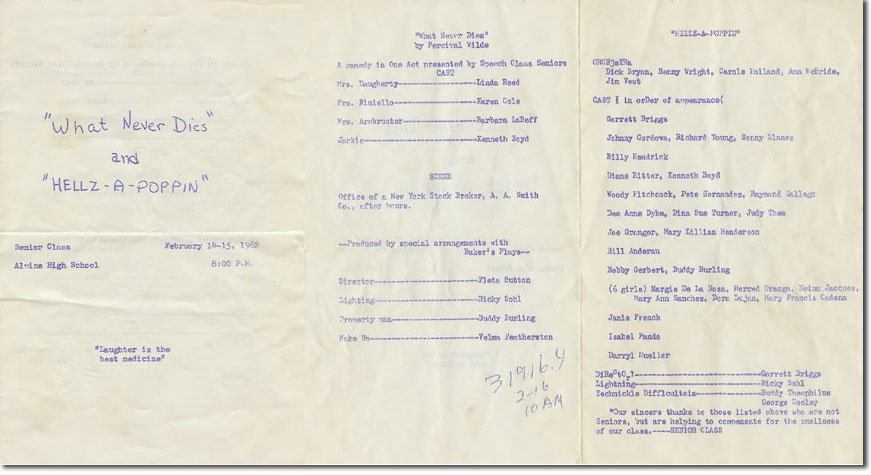 "What Never Dies"
and
"HELLZ-A-POPPIN"
Senior Class February 14-15, 1962
Alpine High School 8:00 P.M.
"Laughter is the
best medicine"
"What Never Dies"
by Percival Wilde
A comedy in One Act presented by Speech Class Seniors
CAST
Mrs. Daugherty--------------------Linda Reed
Mrs. Finiello---------------------Karen Cole
Mrs. Armbruster-------------------Barbara LeBeff
Jackie----------------------------Kenneth Boyd
SCENE
Office of a New York Stock Broker, A. A. Smith
Co., after hours.
--Produced by special arrangements with
Baker's Plays--
Director--------------------------Fleta Sutton
Lighting--------------------------Ricky Sohl
Property man----------------------Buddy Burling
Make Up---------------------------Velma Featherston
31916.4
2-16
10 AM
"HELLZ-A-POPPIN"
ORCH3sTRa
Dick Bryan, Benny Wright, Carole Holland, Ann McBride,
Jim Vest
CAST I in orDer of appearance(
Garrett Briggs
Johnny Cordova, Richard Young, Sonny Llanez
Billy Headrick
Diane Ritter, Kenneth Boyd
Woody Hitchcock, Pete Hernandez, Raymond Gallego
Dee Anne Dyke, Dina Sue Turner, Judy Thee
Joe Granger, Mary Lillian Henderson
Bill Anderau
Bobby Gerbert, Buddy Burling
(6 girls) Margie De La Rosa, Merced Uranga, Jacquez,
Mary Ann Sanchez, Dora Lujan, Mary Francis Cadena
Janis French
Isabel Pando
Darryl Mueller
DiRe©tO_r?-------------------------Garrett Briggs
Lightning--------------------------Ricky Sohl
Technickle Difficulteis------------Buddy Theophilus
George Cooley
"Our sincere thanks to those listed above who are not
Seniors, but are helping to compensate for the smallness
of our class.----SENIOR CLASS